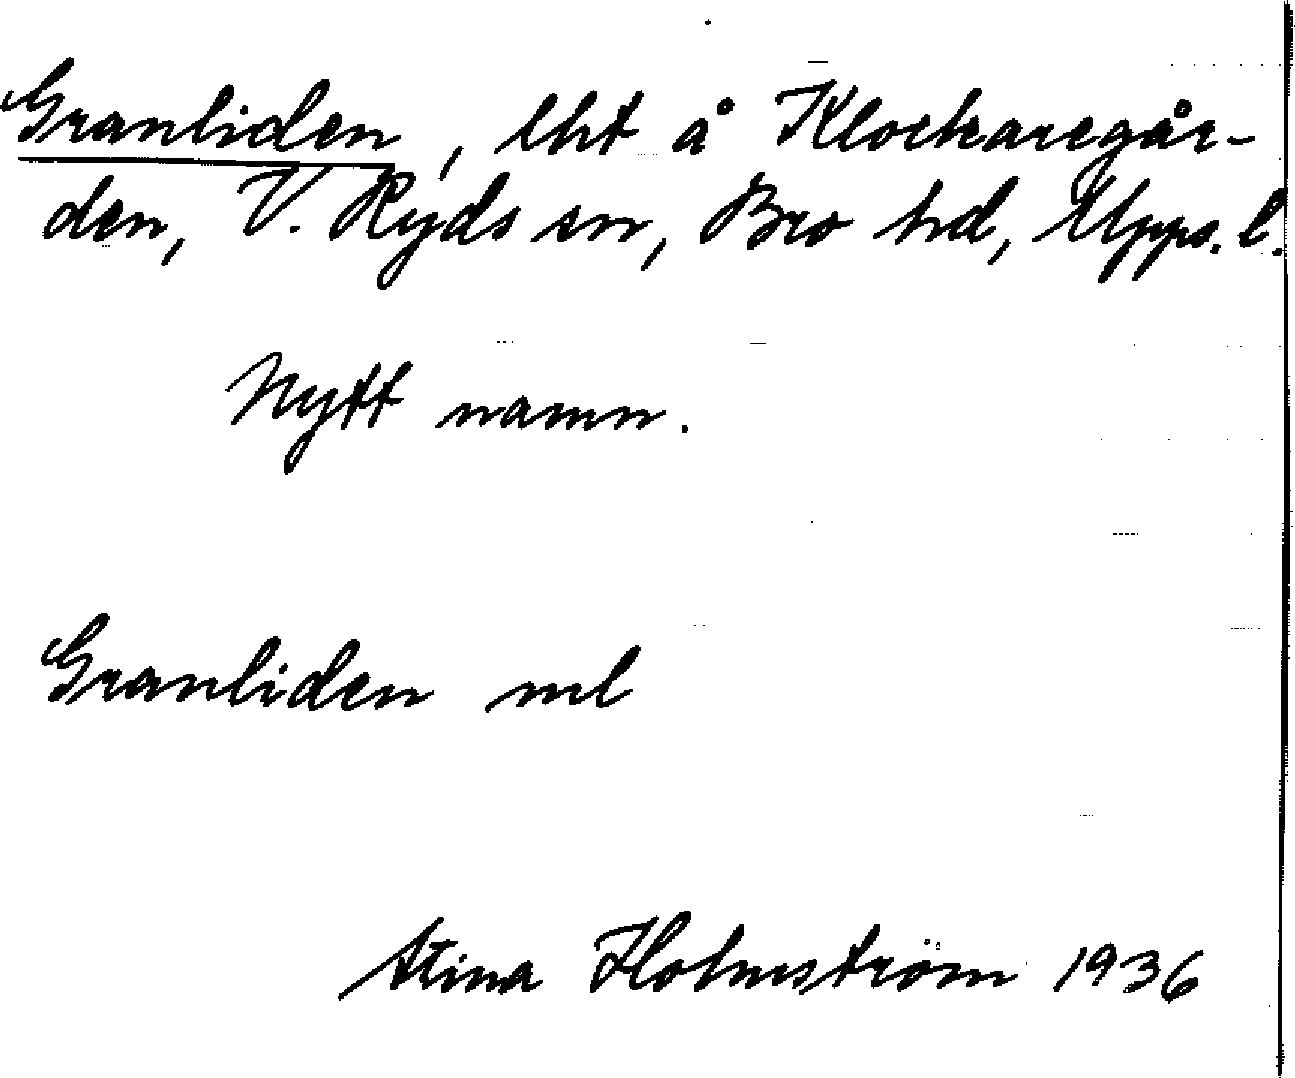 Granliden, lht å Klockaregår-
den, V. Ryds sn, Bro hd, Upps. l.
Nytt namn.
Granliden ml
Stina Holmström 1936